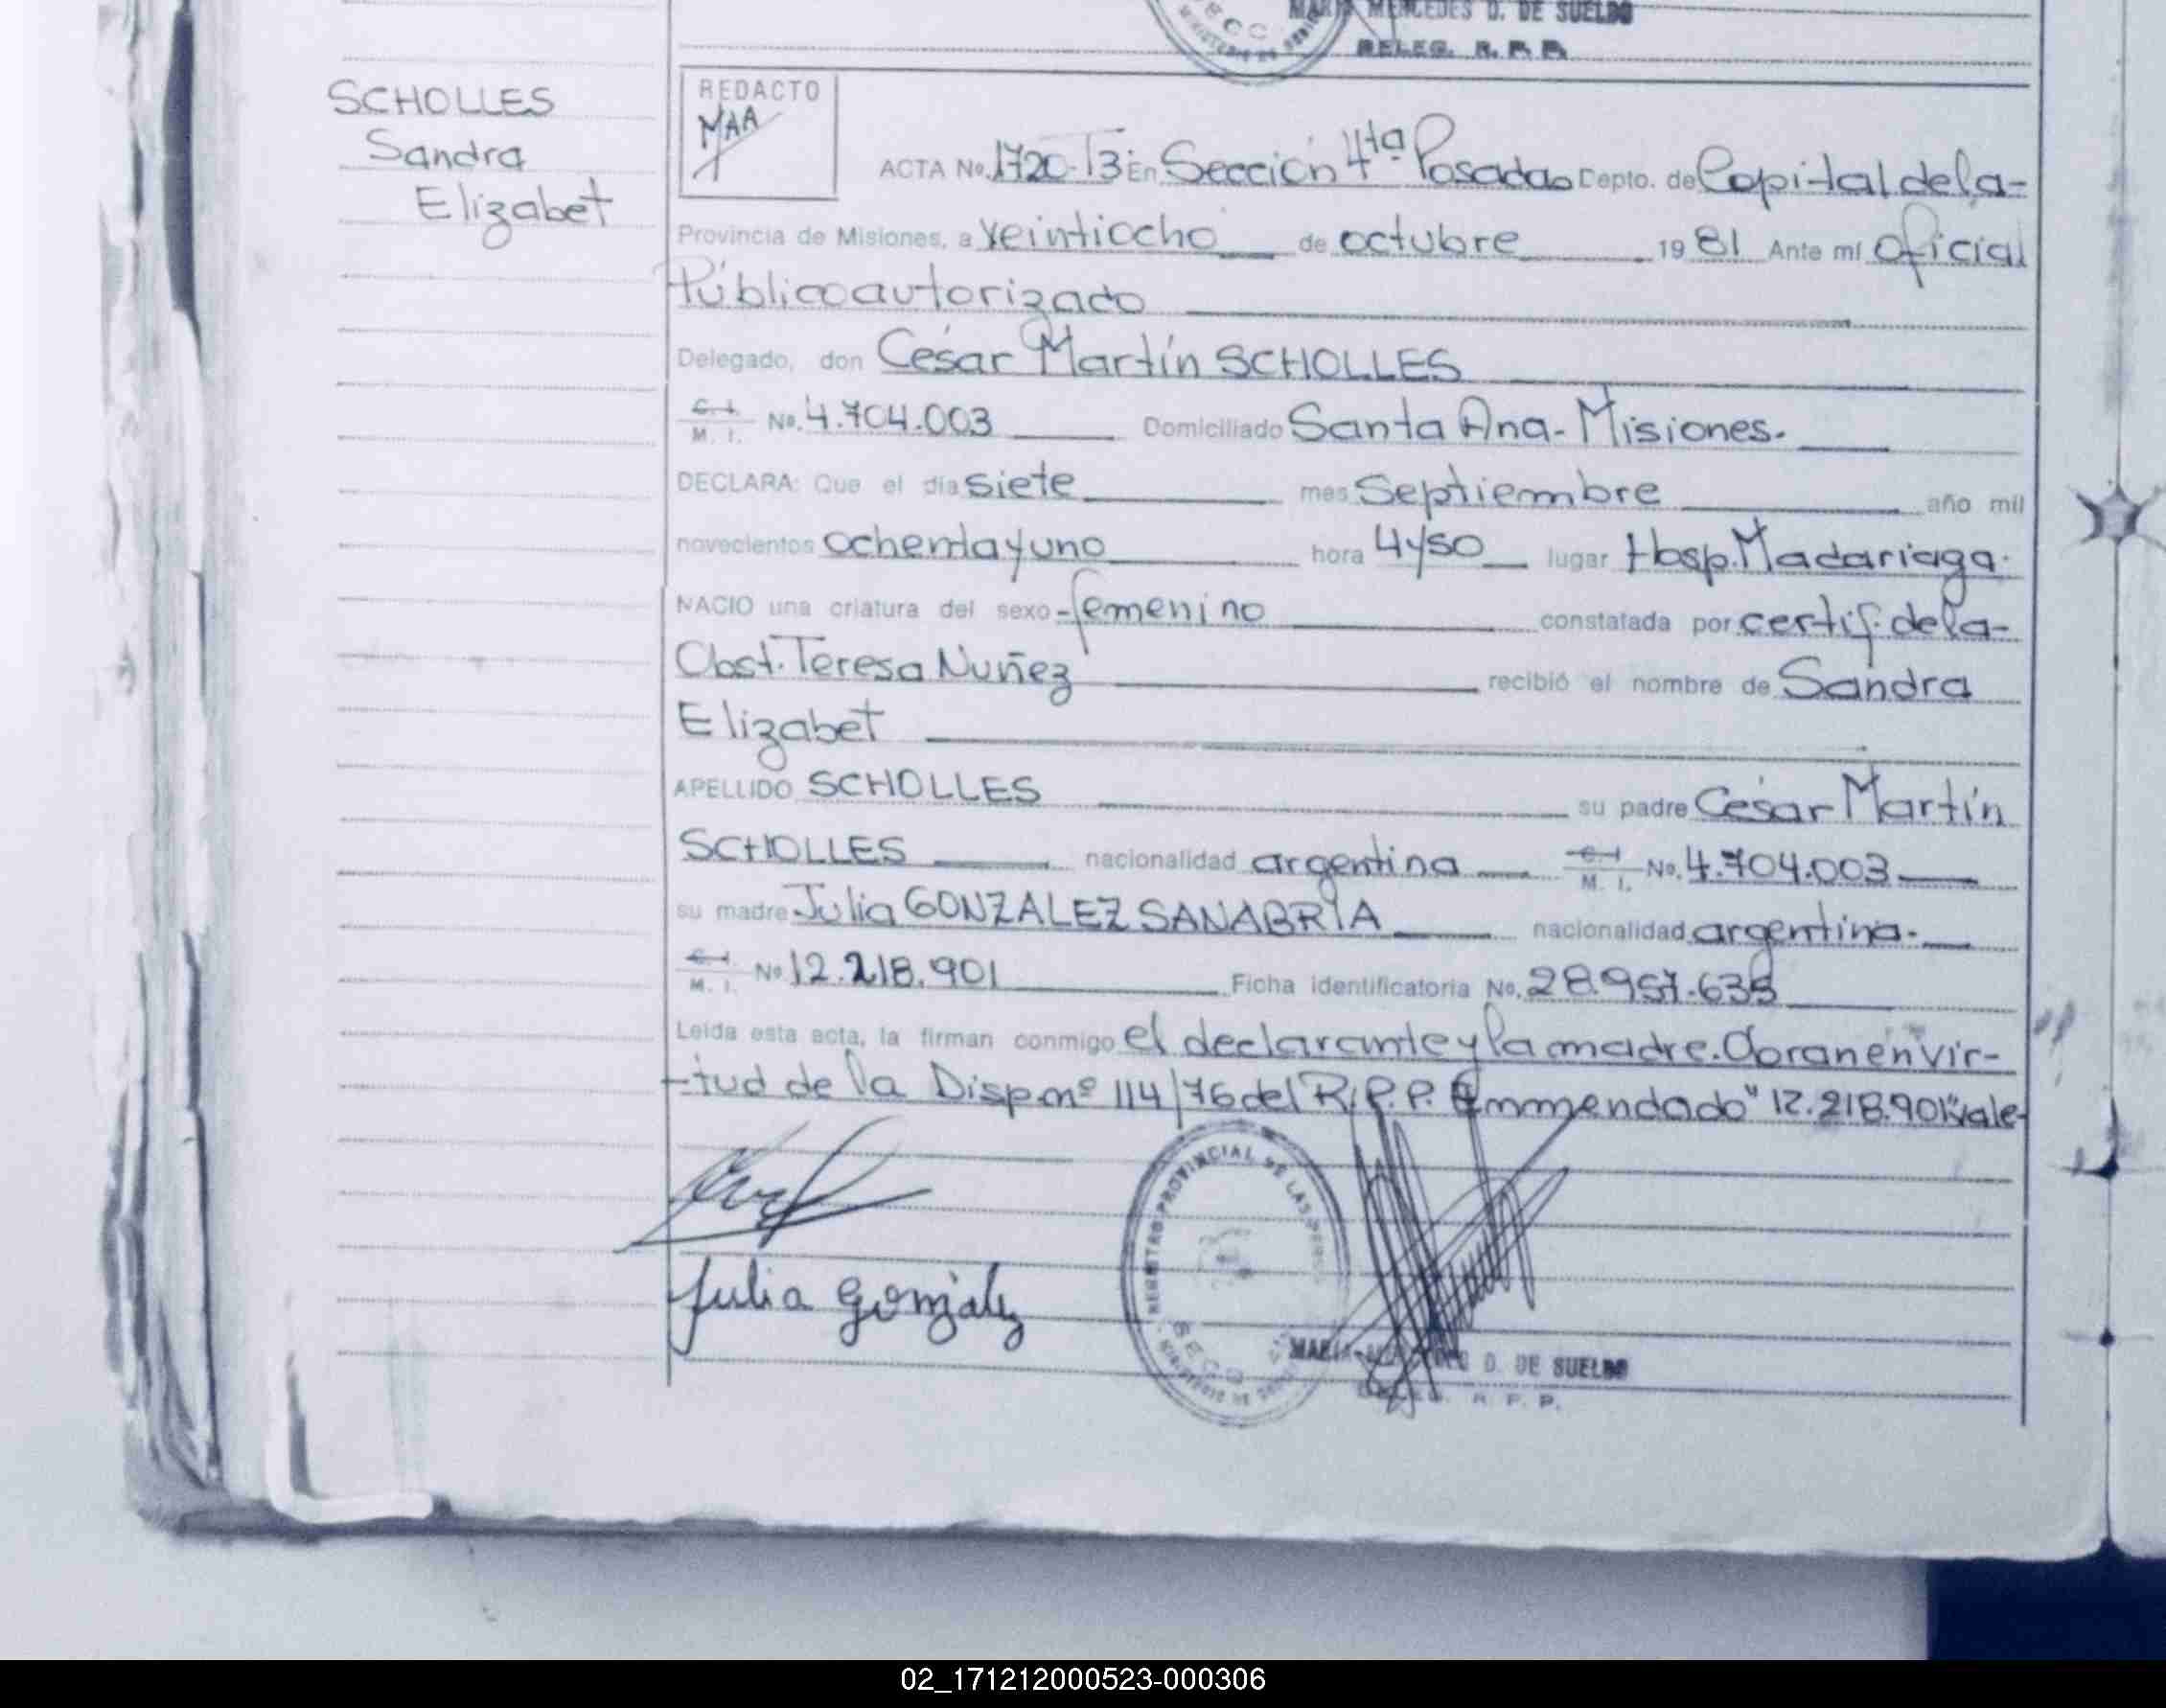 MARIA MERCEDES D. DE SUELDO
DELEG. R. P. P.
SCHOLLES
Sandra
Elizabet
REDACTO
MAA
ACTA No. 1720-T3 En Sección 4ta Posadas Depto. de Capital de la-
Provincia de Misiones, a veintiocho de octubre 1981 Ante mí Oficial
Público autorizado
Delegado, don César Martín SCHOLLES
C. I. M. I. No. 4.704.003 Domiciliado Santa Ana- Misiones.
DECLARA: Que el día siete mes Septiembre año mil
novecientos ochenta y uno hora 4y50 lugar Hosp. Madariaga.
NACIO una criatura del sexo -femenino constatada por certif. de la-
Obst. Teresa Nuñez recibió el nombre de Sandra
Elizabet
APELLIDO SCHOLLES su padre César Martín
SCHOLLES nacionalidad argentina C. I. M. I. No. 4.704.003
su madre Julia GONZALEZ SANABRIA nacionalidad argentina.
C. I. M. I. No 12.218.901 Ficha identificatoria No. 28.957.638
Leída esta acta, la firman conmigo el declarante y la madre. Obran en vir-
-tud de la Disp. nº 114/76 del R.P.P. Enmendado "12.218.901" vale-
Julia González
REGISTRO PROVINCIAL DE LAS
D. DE SUELDO
R. P. P.
02_171212000523-000306